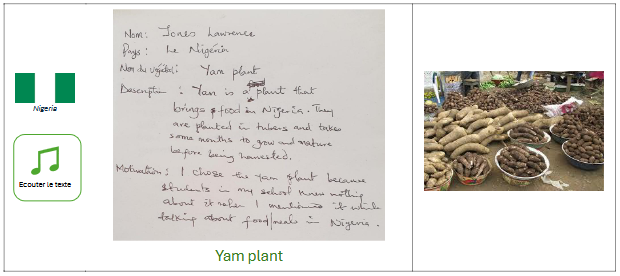 Nigeria
Ecouter le texte
Nom: Jones Lawrence
Pays: Le Nigéria
Nom du végétal: Yam plant
Description: Yam is a plant that
brings food in Nigeria. They
are planted in tubers and takes
some months to grow and mature
before being harvested.
Motivation: I chose the yam plant because
students in my school knew nothing
about it when I mentioned it while
talking about food/meals in Nigeria.
Yam plant